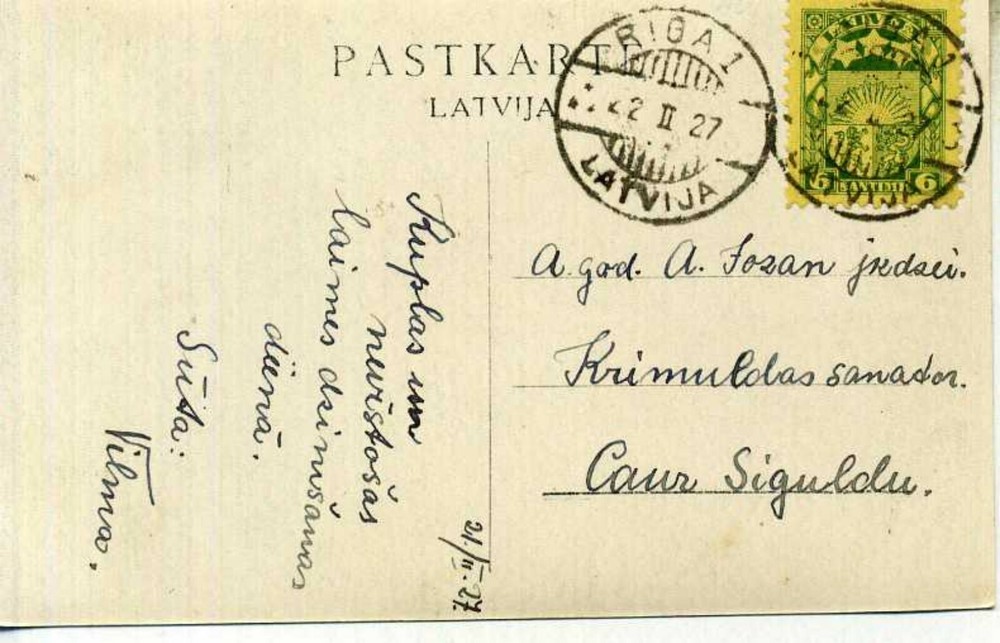 PASTKARTE
LATVIJA
RIGA 1
22 II 27
LATVIJA
LATVIJA
6 SANTIMI 6
A. god. A. Fozan jkdzei.
Krimuldas sanator.
Caur Siguldu.
Kuplas un
nevīstošas
laimes dzimšanas
dienā.
Sūta:
Vilma.
21./II.-27.